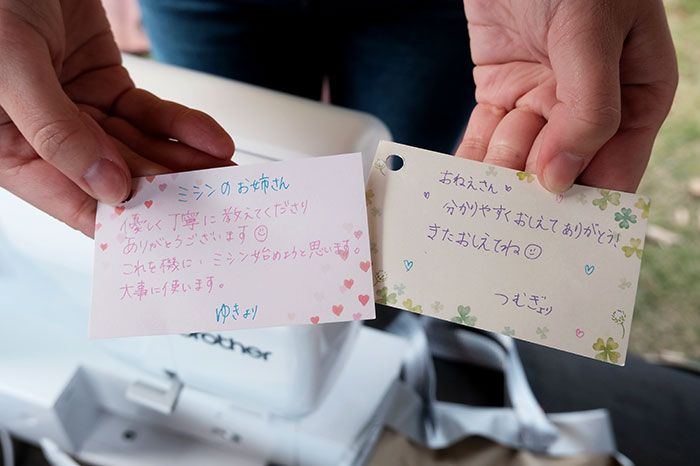 ミシンのお姉さん
優しく丁寧に教えてくださり
ありがとうございます
これを機に、ミシン始めようと思います。
大事に使います。
ゆきより
おねえさん
分かりやすくおしえてありがとう!
きたおしえてね
つむぎより
brother